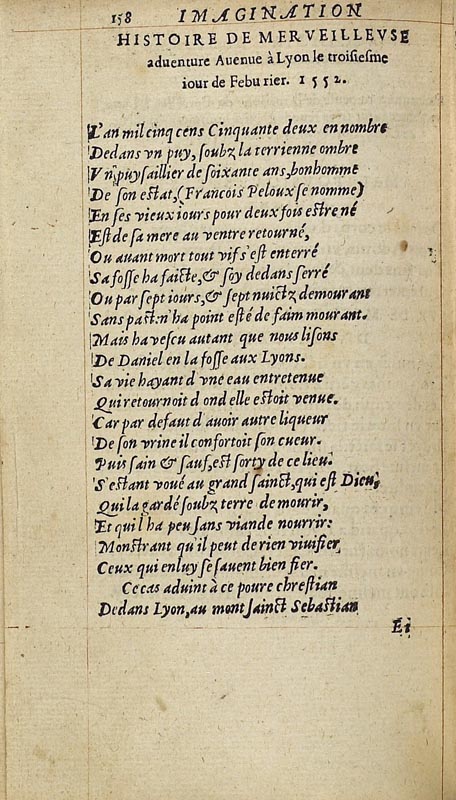 158 IMAGINATION
HISTOIRE DE MERVEILLEVSE
aduenture Auenue à Lyon le troisiesme
iour de Feburier. 1552.
L'an mil cinq cens Cinquante deux en nombre
Dedans vn puy, soubz la terrienne ombre
Vn puysaillier de soixante ans, bonhomme
De son estat, (Francois Peloux se nomme)
En ses vieux iours pour deux fois estre né
Est de sa mere au ventre retourné,
Ou auant mort tout vif s'est enterré
Sa fosse ha faicte, & soy dedans serré
Ou par sept iours, & sept nuictz demourant
Sans past: n'ha point esté de faim mourant.
Mais ha vescu autant que nous lisons
De Daniel en la fosse aux Lyons.
Sa vie hayant d vne eau entretenue
Qui retournoit d ond elle estoit venue.
Car par defaut d auoir autre liqueur
De son vrine il confortoit son cueur.
Puis sain & sauf, est sorty de ce lieu.
S'estant voué au grand sainct, qui est Dieu,
Qui la gardé soubz terre de mourir,
Et qui l ha peu sans viande nourrir:
Monstrant qu'il peut de rien viuifier
Ceux qui en luy se sauent bien fier.
Ce cas aduint à ce poure chrestian
Dedans Lyon, au mont sainct Sebastian
Ei